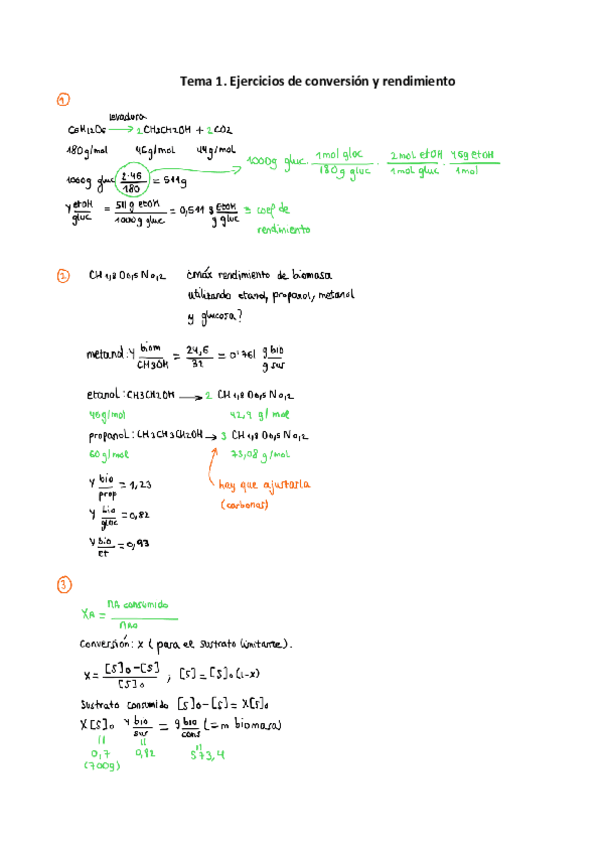 Tema 1. Ejercicios de conversión y rendimiento
1
levadura
C6H12O6 → 2 CH3CH2OH + 2 CO2
180g/mol 46g/mol 44g/mol
1000g gluc · 1mol gloc / 180g gluc · 2mol etOH / 1mol gluc · 46g etOH / 1mol
1000g gluc 2·46 / 180 = 511g
Y etOH / gluc = 511 g etOH / 1000g gluc = 0,511 g EtOH / g gluc = coefº de
rendimiento
2 CH1,8O0,5N0,2 ¿máx rendimiento de biomasa
utilizando etanol, propanol, metanol
y glucosa?
metanol: Y biom / CH3OH = 24,6 / 32 = 0'761 g bio / g sus
etanol: CH3CH2OH → 2 CH1,8O0,5N0,2
46g/mol 42,9 g/mol
propanol: CH3CH2CH2OH → 3 CH1,8O0,5N0,2
60g/mol 73,08g/mol
Y bio / prop = 1,23 hay que ajustarla
(carbonos)
Y bio / gloc = 0,82
Y bio / et = 0,93
3
XA = nA consumido / nAo
Conversión: X (para el sustrato limitante).
X = [S]o-[S] / [S]o ; [S] = [S]o(1-x)
Sustrato consumido [S]o-[S] = X[S]o
X[S]o Y bio / sus = g bio / cons (= m biomasa)
0,7 0,82 573,4
(700g)